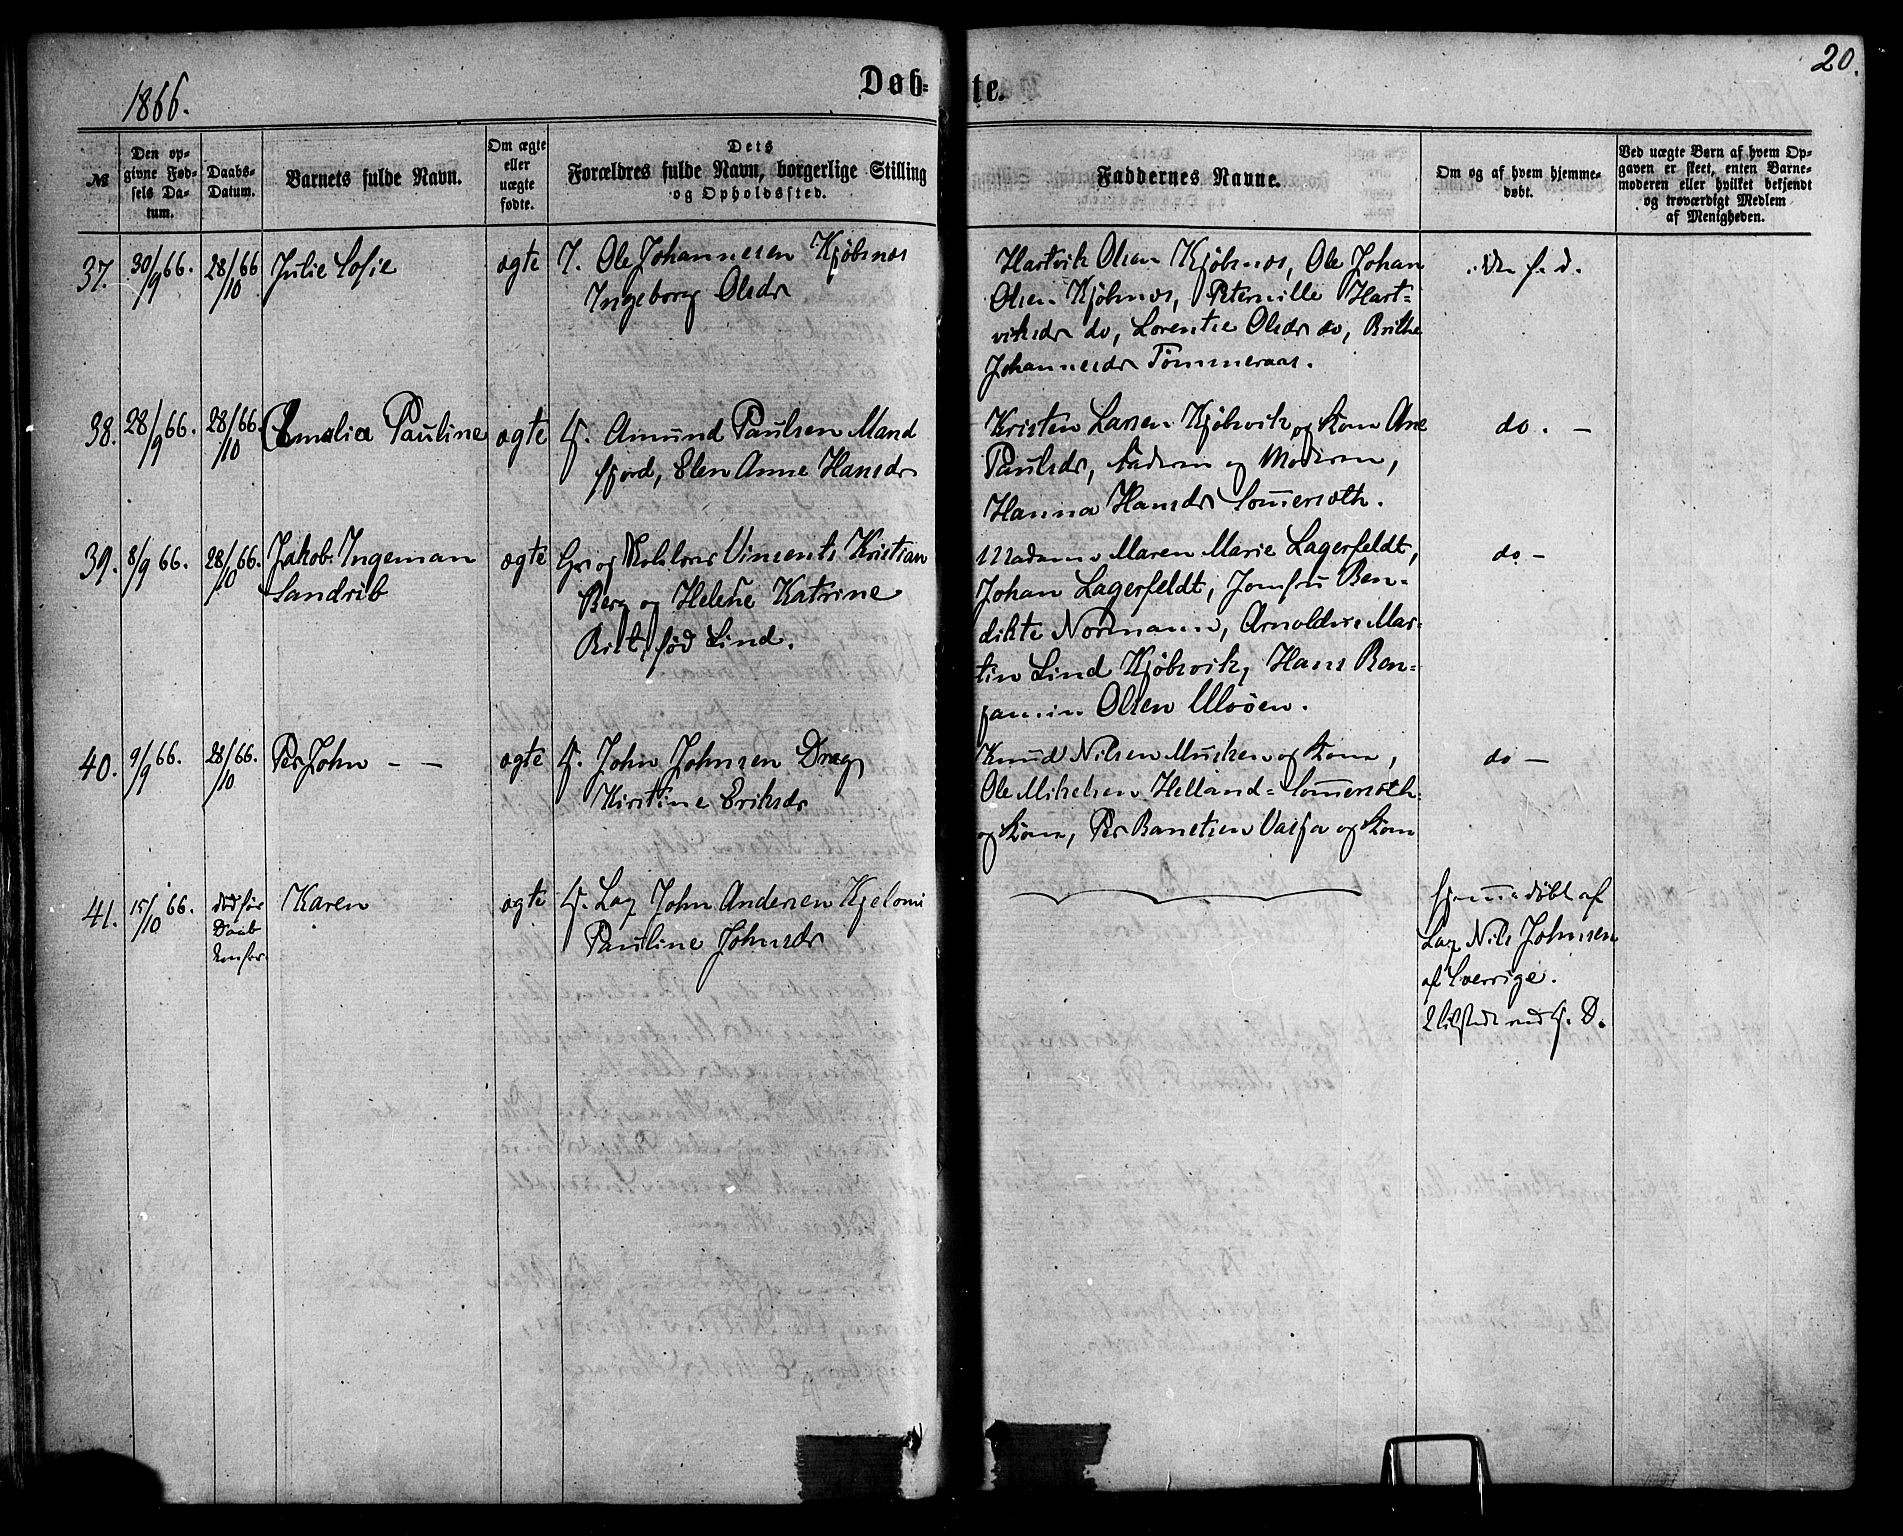 1866.
Døb-
te.
20.
№
Den op-
givne Fød-
sels Da-
tum.
Daabs-
Datum.
Barnets fulde Navn.
Om ægte
eller
uægte
fødte.
Dets
Forældres fulde Navn, borgerlige Stilling
og Opholdssted.
Faddernes Navne.
Om og af hvem hjemme-
døbt.
Ved uægte Børn af hvem Op-
gaven er skeet, enten Barne-
moderen eller hvilket bekjendt
og troværdigt Medlem
af Menigheden.
37.
30/9 66.
28/10 66
Julie Sofie
ægte
I. Ole Johannesen Kjöbsnæs
Ingeborg Olsdr
Hartvik Olsen Kjöbsnæs, Ole Johan
Olsen Kjöbsnæs, Peternille Hart-
viksdr do, Lorentse Olsdr do, Brithe
Johannesdr Tömmeraas.
f. d.
38.
28/9 66.
28/10 66.
Emalia Pauline
ægte
G. Amund Paulsen Mand
fjord, Elen Anne Hansdr
Kristen Larsen Kjöbsvik og Kone Ane
Paulsdr, Faderen og Moderen,
Hanna Hansdr Somersæth.
do. -
39.
8/9 66.
28/10 66.
Jakob Ingeman
Sandrib
ægte
Vincents Kristian
Berg og Helene Katrine
född Lind.
Madame Maren Marie Lagerfeldt,
Johan Lagerfeldt, Jomfru Ben-
dikte Normann, Arnoldus Mar-
tin Lind Kjöbsvik, Hans Ben-
jamin Olsen
do -
40.
9/9 66.
28/10 66.
Per John - -
ægte
G. John Johnsen Drag
Kirstine Eriksdr
Knud Nilsen Musken og Kone,
Ole Mikelsen Helland = Somersæth
og Kone, Per Banetsen Vasja og Kone
do -
41.
15/10 66.
död før
Daab
Karen
ægte
G. Lap John Andersen Kjelomi
Pauline Johnsdr
hjemmedöbt af
Lap Nils Johnsen
af Sverrige.
G. D.